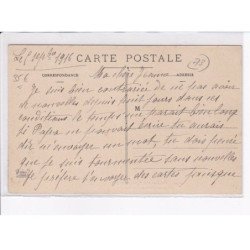 Le 8 7bre 1916
CARTE POSTALE
78
35 €
CORRESPONDANCE
Ma chère Jeanne
ADRESSE
Je suis bien contrariée de ne pas avoir
de nouvelles depuis huit jours dans ces
conditions le temps me paraît bien long
si Papa ne pouvait écrire tu aurais
dû m'envoyer un mot, tu dois penser
que je suis tourmentée sans nouvelles
je préfère t'envoyer des cartes puisque